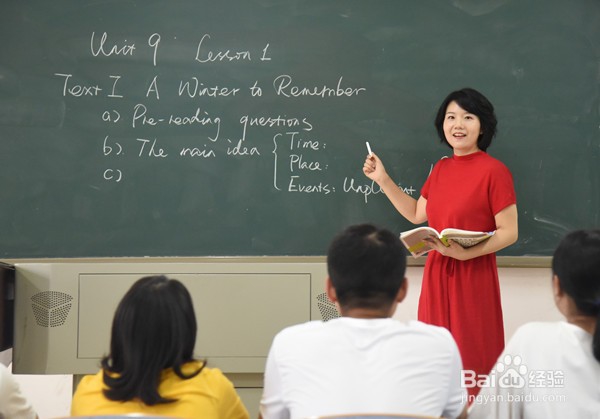 Unit 9 Lesson 1
Text I A Winter to Remember
a) Pre-reading questions
b) The main idea { Time:
Place:
Events:
c)
Baidu 经验
jingyan.baidu.com